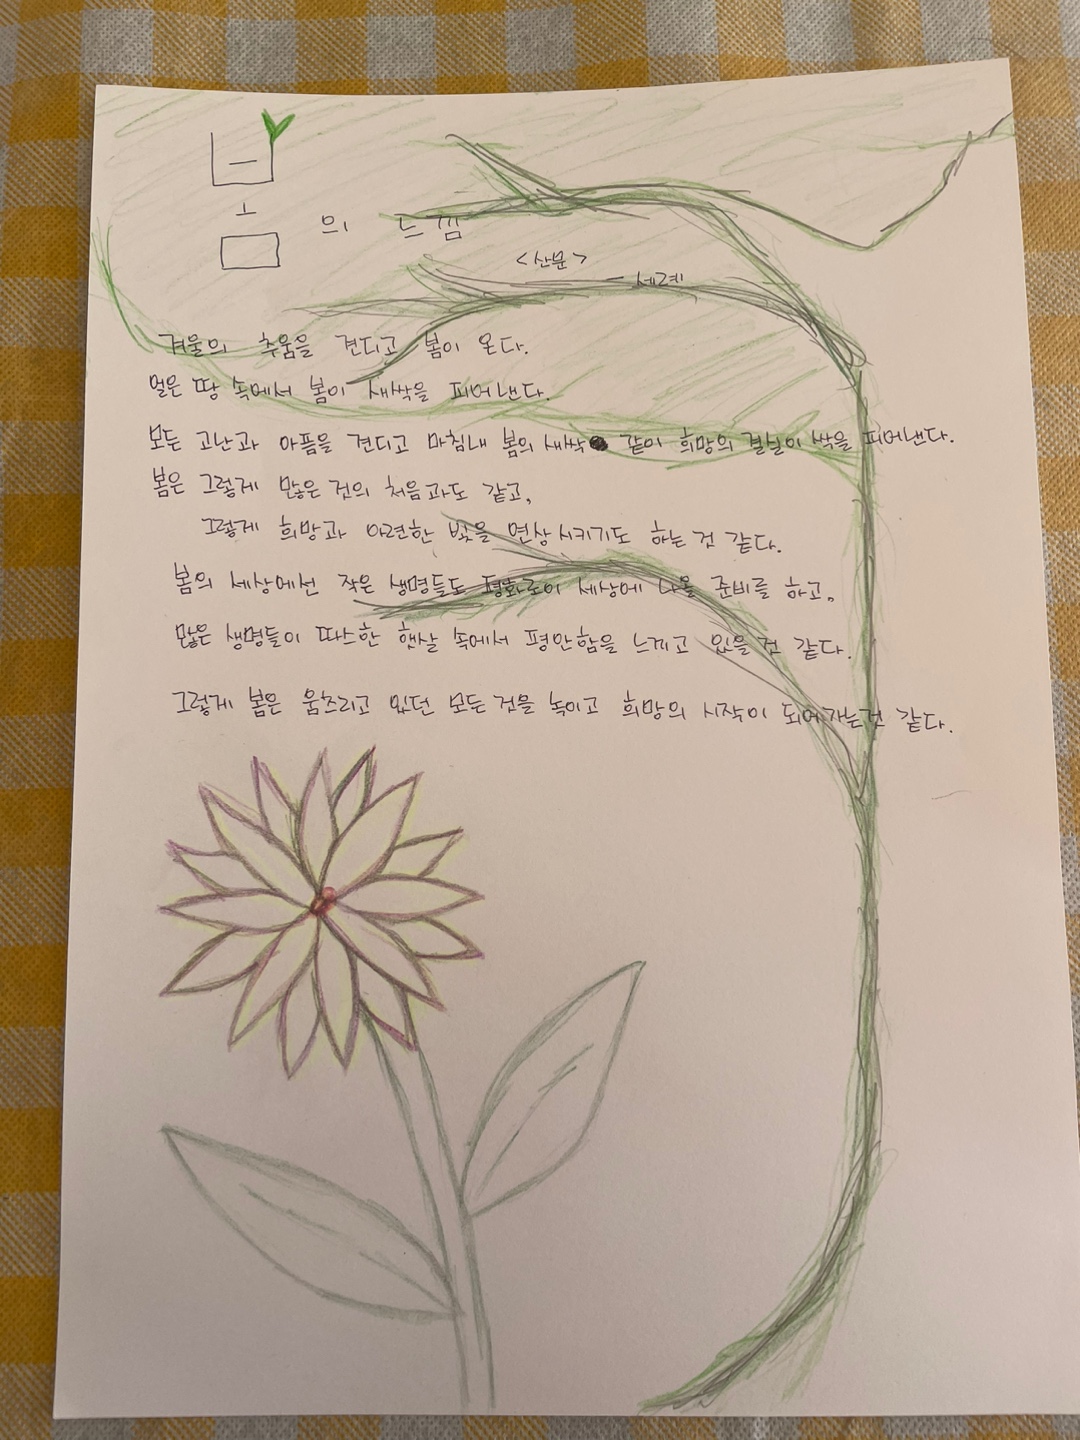 봄의 느낌
<산문>
세례
겨울의 추움을 견디고 봄이 온다.
얼은 땅 속에서 봄이 새싹을 피어낸다.
모든 고난과 아픔을 견디고 마침내 봄의 새싹 같이 희망의 결실이 싹을 피어낸다.
봄은 그렇게 많은 것의 처음과도 같고,
그렇게 희망과 아련한 빛을 연상시키기도 하는 것 같다.
봄의 세상에선 작은 생명들도 평화로이 세상에 나올 준비를 하고,
많은 생명들이 따스한 햇살 속에서 평안함을 느끼고 있을 것 같다.
그렇게 봄은 움츠리고 있던 모든 것을 녹이고 희망의 시작이 되어가는 것 같다.